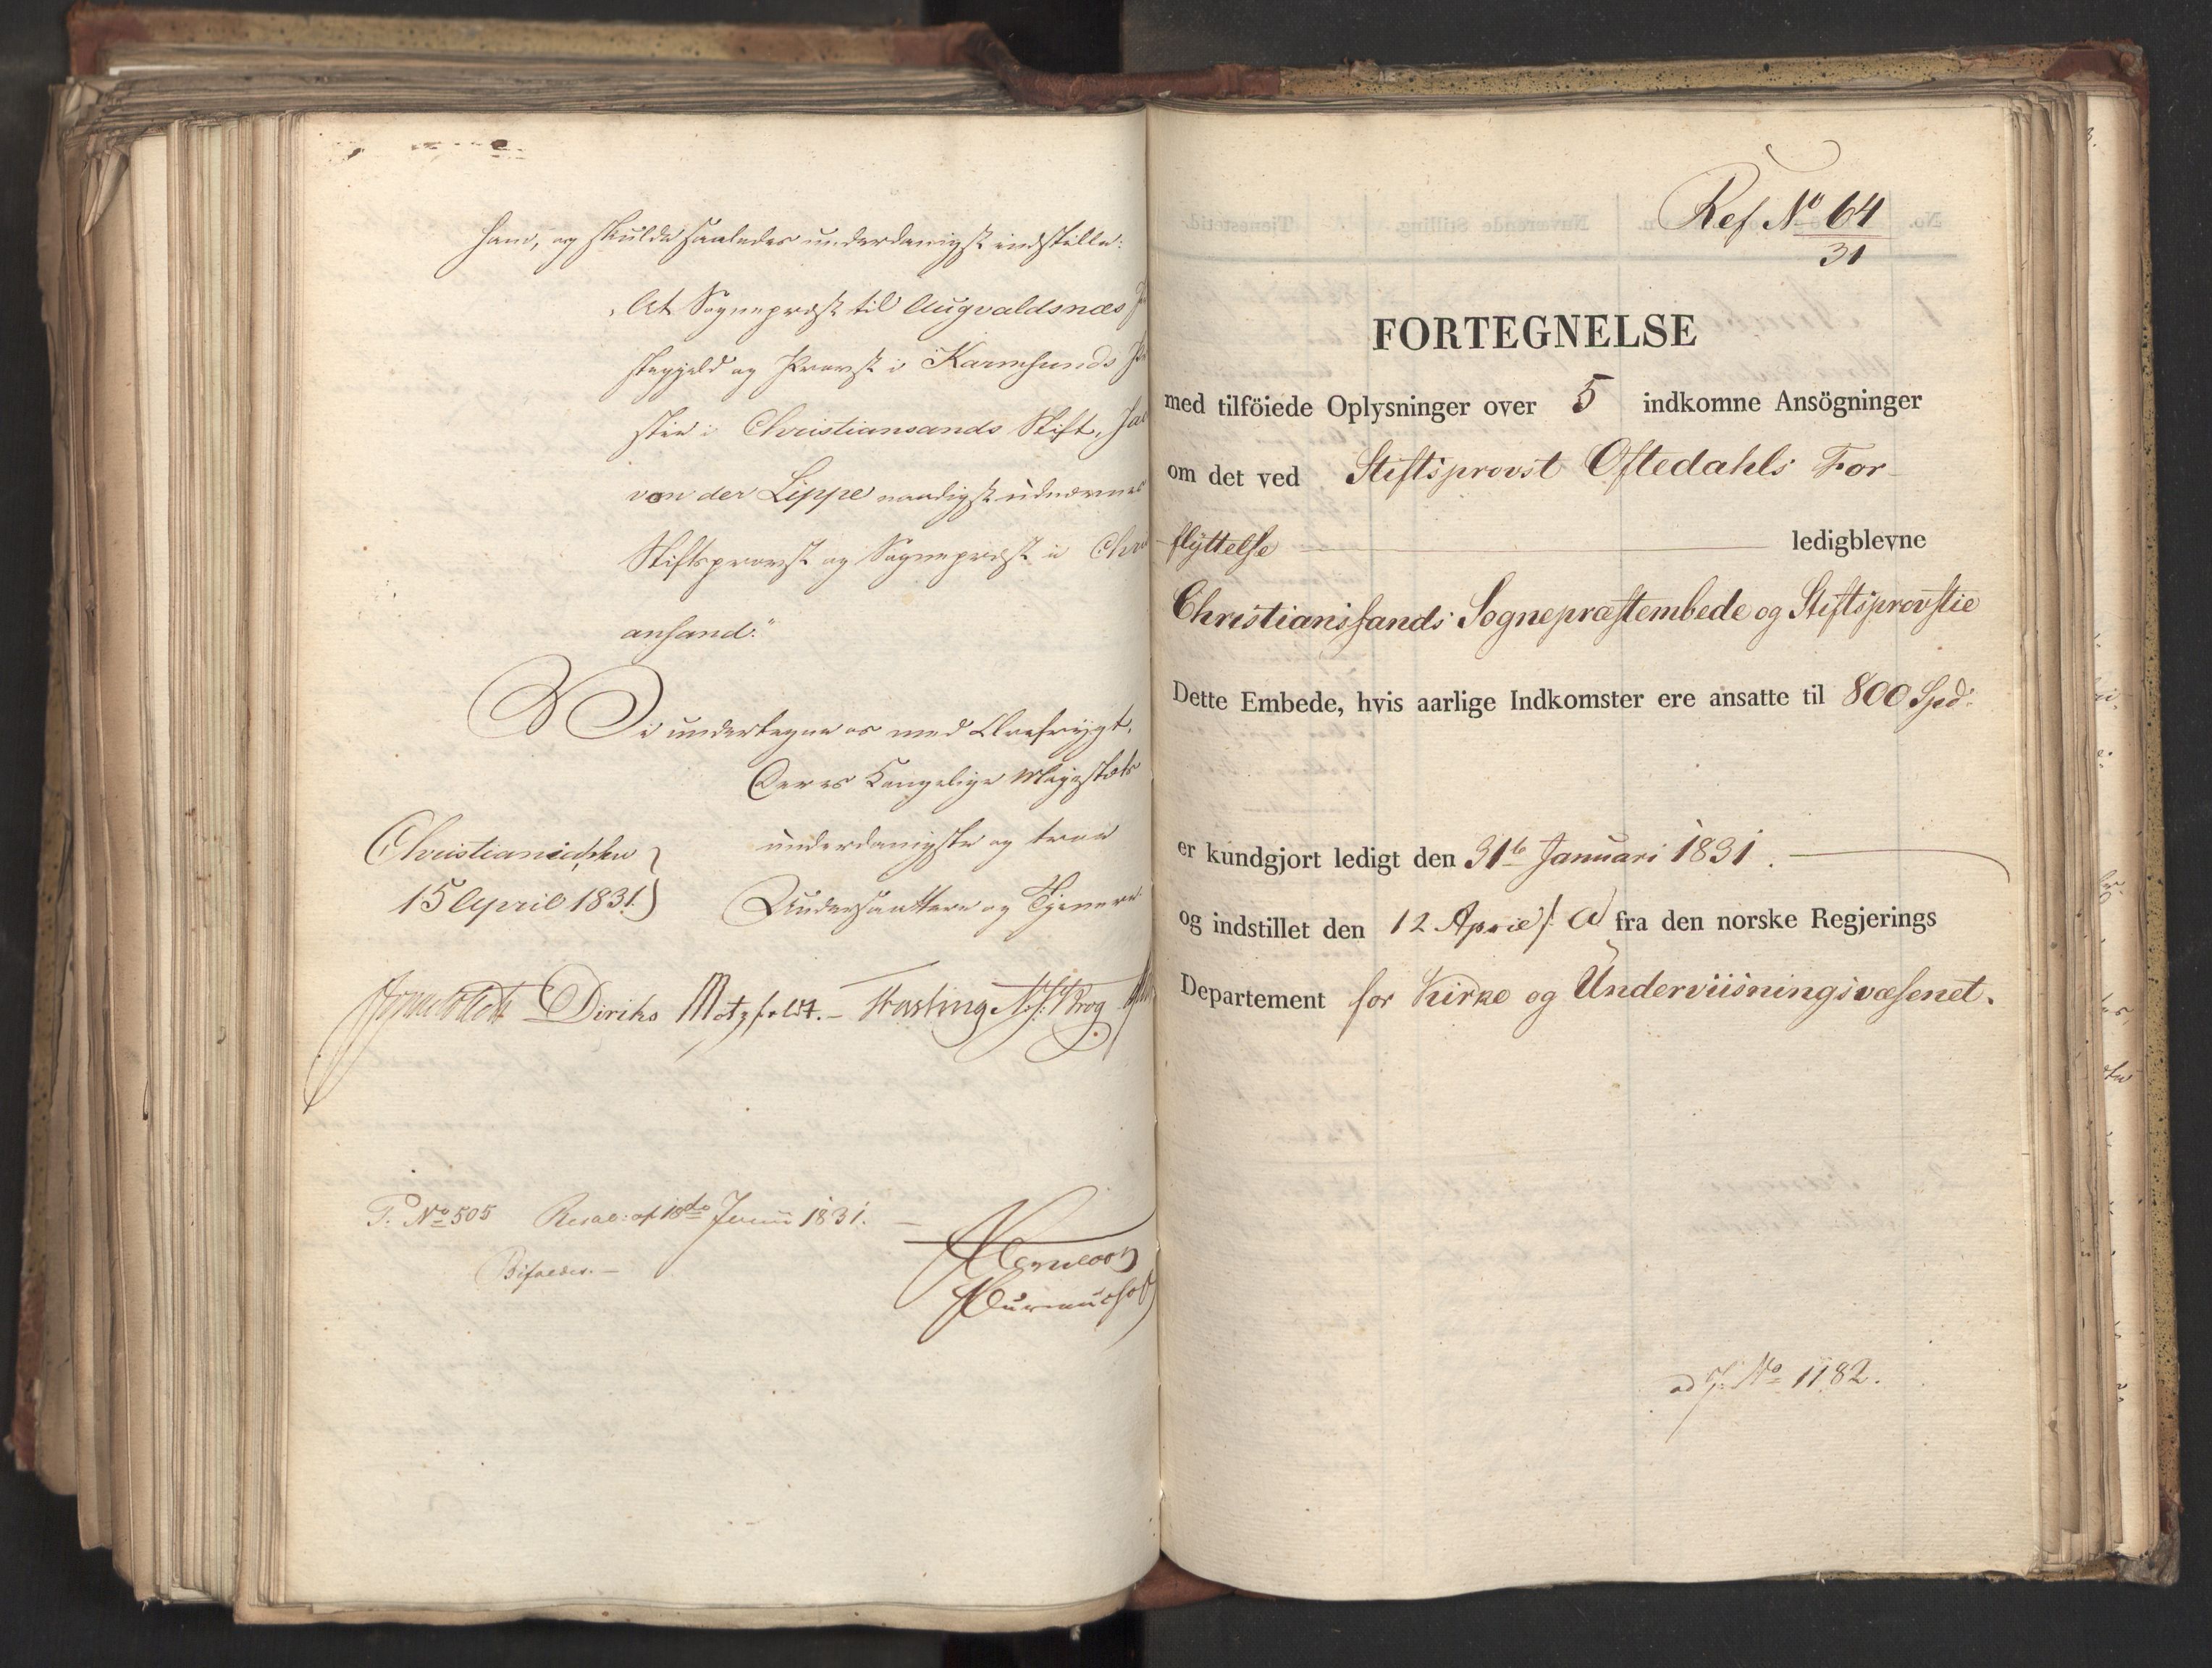 ham, og skulde saaledes underdanigst indstille:
"At Sognepræst til Augvaldsnæs
stegjeld og Provst i Karmsunds
stie i Christiansands Stift, Jac
von der Lippe naadigst udnævnes
Stiftsprovst og Sognepræst i Chri
ansand."
Vi undertegne os med Ærefrygt,
Deres Kongelige Majestæts
underdanigste og troe
Undersaatter og Tjenere
Christiania den
15 April 1831.
Diriks Motzfeldt. Fasting Krog
P. No 505 Resol: af 18de Junii 1831.
Bifaldes.
Ref No 64
31
FORTEGNELSE
med tilföiede Oplysninger over 5 indkomne Ansögninger
om det ved Stiftsprovst Oftedahls For-
flyttelse ledigblevne
Christianssands Sognepræstembede og Stiftsprovstie
Dette Embede, hvis aarlige Indkomster ere ansatte til 800 Spd:
er kundgjort ledigt den 31te Januari 1831.
og indstillet den 12 April s. A fra den norske Regjerings
Departement for Kirke og Underviisningsvæsenet.
ad J. No 1182.